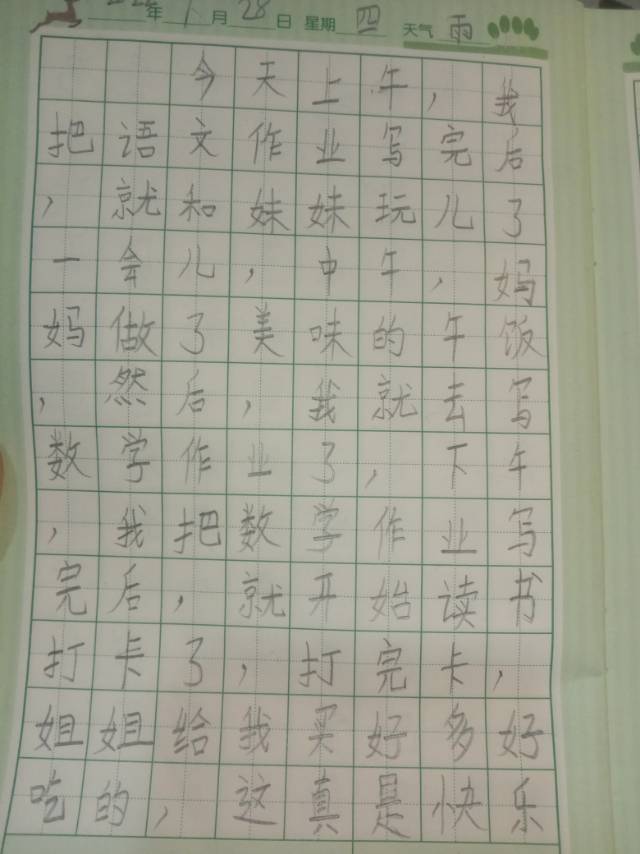 年 月 28 日 星期 四 天气 雨
今天上午，我
把语文作业写完后
，就和妹妹玩儿了
一会儿，中午，妈
妈做了美味的午饭
，然后，我就去写
数学作业了，下午
，我把数学作业写
完后，就开始读书
打卡了，打完卡，
姐姐给我买好多好
吃的，这真是快乐